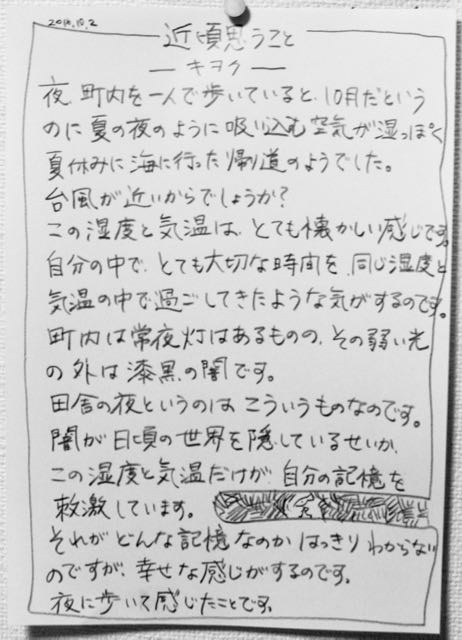 2016.10.2
近頃思うこと
ーキヲクー
夜、町内を一人で歩いていると、10月だという
のに夏の夜のように吸い込む空気が湿っぽく
夏休みに海に行った帰り道のようでした。
台風が近いからでしょうか?
この湿度と気温は、とても懐かしい感じです。
自分の中で、とても大切な時間を、同じ湿度と
気温の中で過ごしてきたような気がするのです。
町内は常夜灯はあるものの、その弱い光
の外は漆黒の闇です。
田舎の夜というのは、こういうものなのです。
闇が日頃の世界を隠しているせいか、
この湿度と気温だけが、自分の記憶を
刺激しています。
それがどんな記憶なのかはっきりわからない
のですが、幸せな感じがするのです。
夜に歩いて感じたことです。